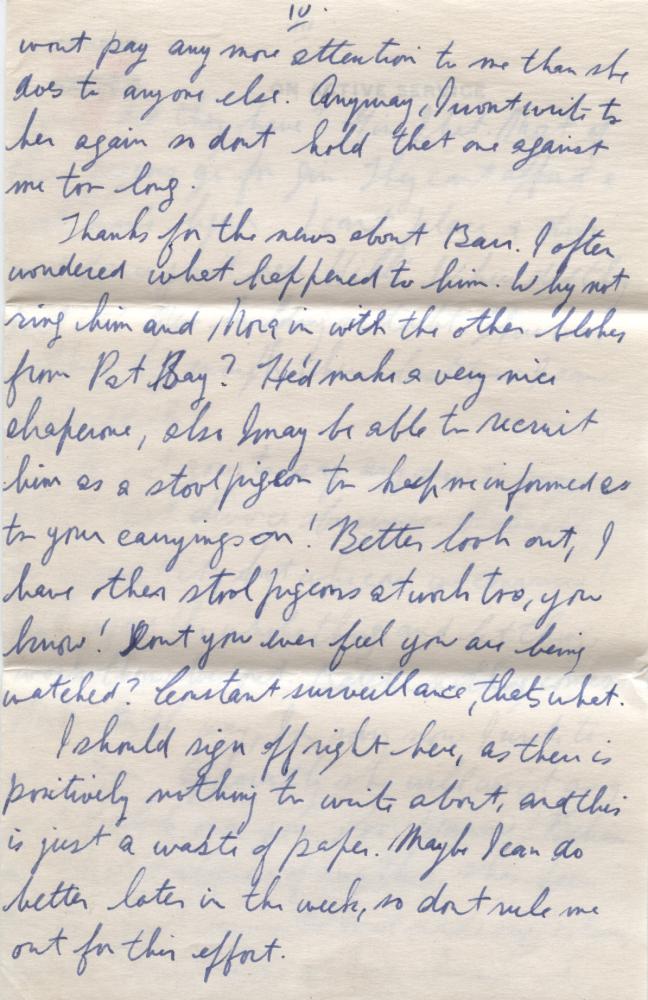 10.
wont pay any more attention to me than she
does to anyone else. Anyway, I wont write to
her again so dont hold that one against
me too long.
Thanks for the news about Barr. I often
wondered what happened to him. Why not
ring him and Mora in with the other blokes
from Pat Bay? He'd make a very nice
chaperone, also I may be able to recruit
him as a stool pigeon to keep me informed as
to your carryings on! Better look out, I
have other stool pigeons at work too, you
know! Dont you ever feel you are being
watched? Constant surveillance, thats what.
I should sign off right here, as there is
positively nothing to write about, and this
is just a waste of paper. Maybe I can do
better later in the week, so dont rule me
out for this effort.